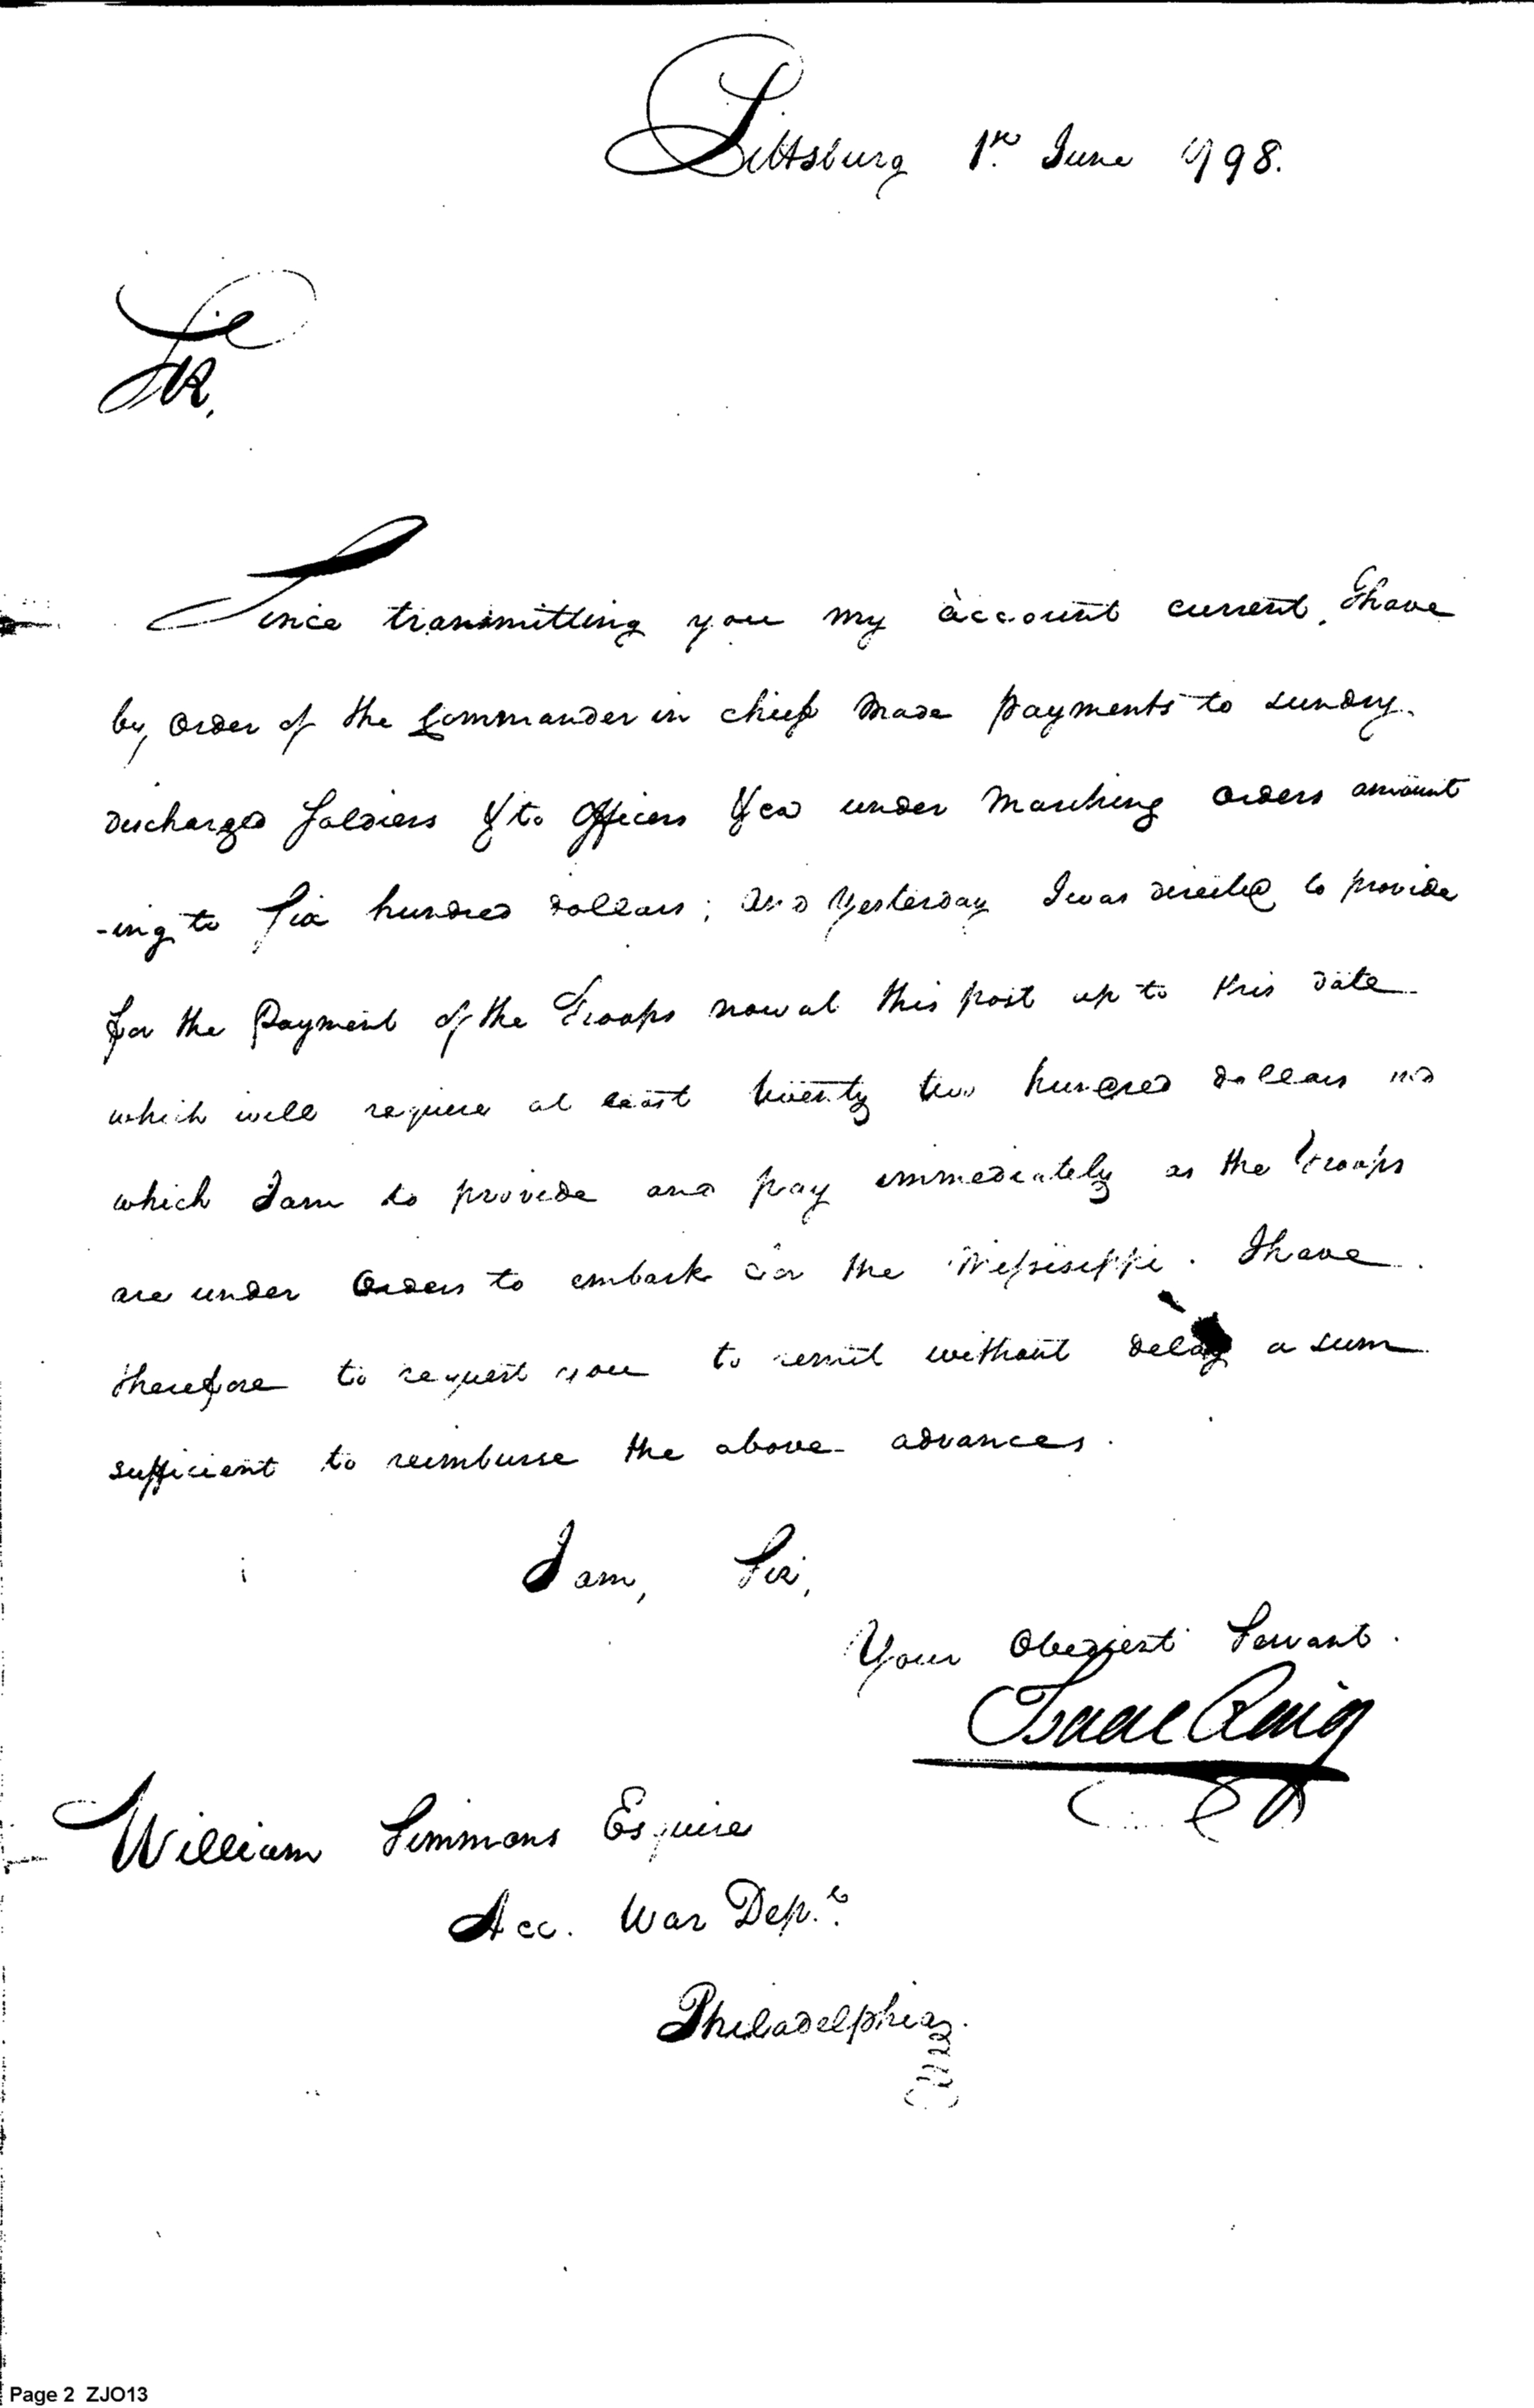 Pittsburg 1st June 1798.
Sir,
Since transmitting you my account current, I have
by order of the Commander in chief made payments to sundry
discharged Soldiers & to Officers &ca under marching orders amount
-ing to Six hundred dollars; and yesterday I was directed to provide
for the Payment of the Troops now at this post up to this date
which will require at least twenty two hundred dollars
which I am to provide and pay immediately as the troops
are under Orders to embark for the Missisippi. I have
therefore to request you to remit without delay a sum
sufficient to reimburse the above advances.
I am, Sir,
Your Obedient Servant.
Isaac Craig
William Simmons Esquire
Acc. War Dept.
Philadelphia.
Page 2 ZJO13